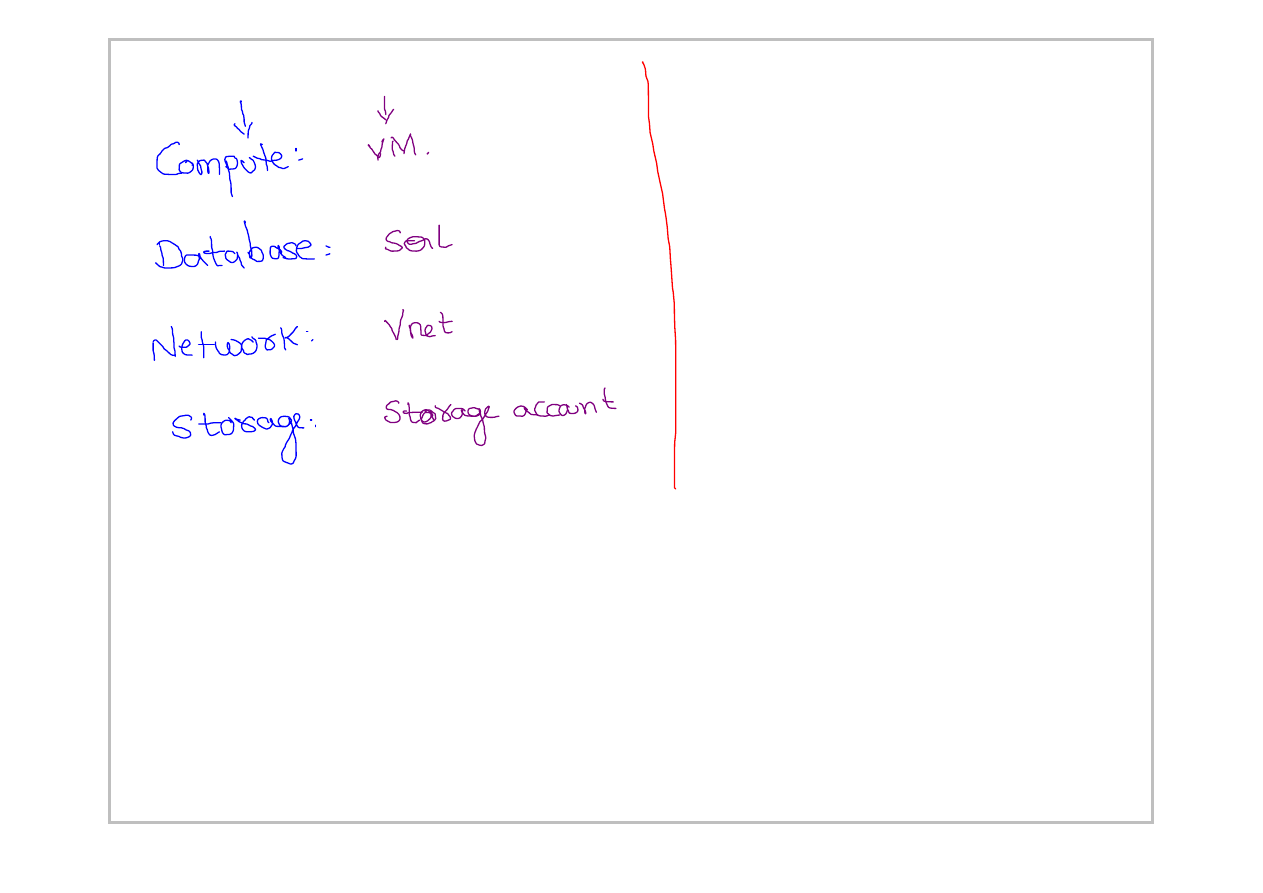 Compute: VM.
Database: SQL
Network: Vnet
Storage: Storage account